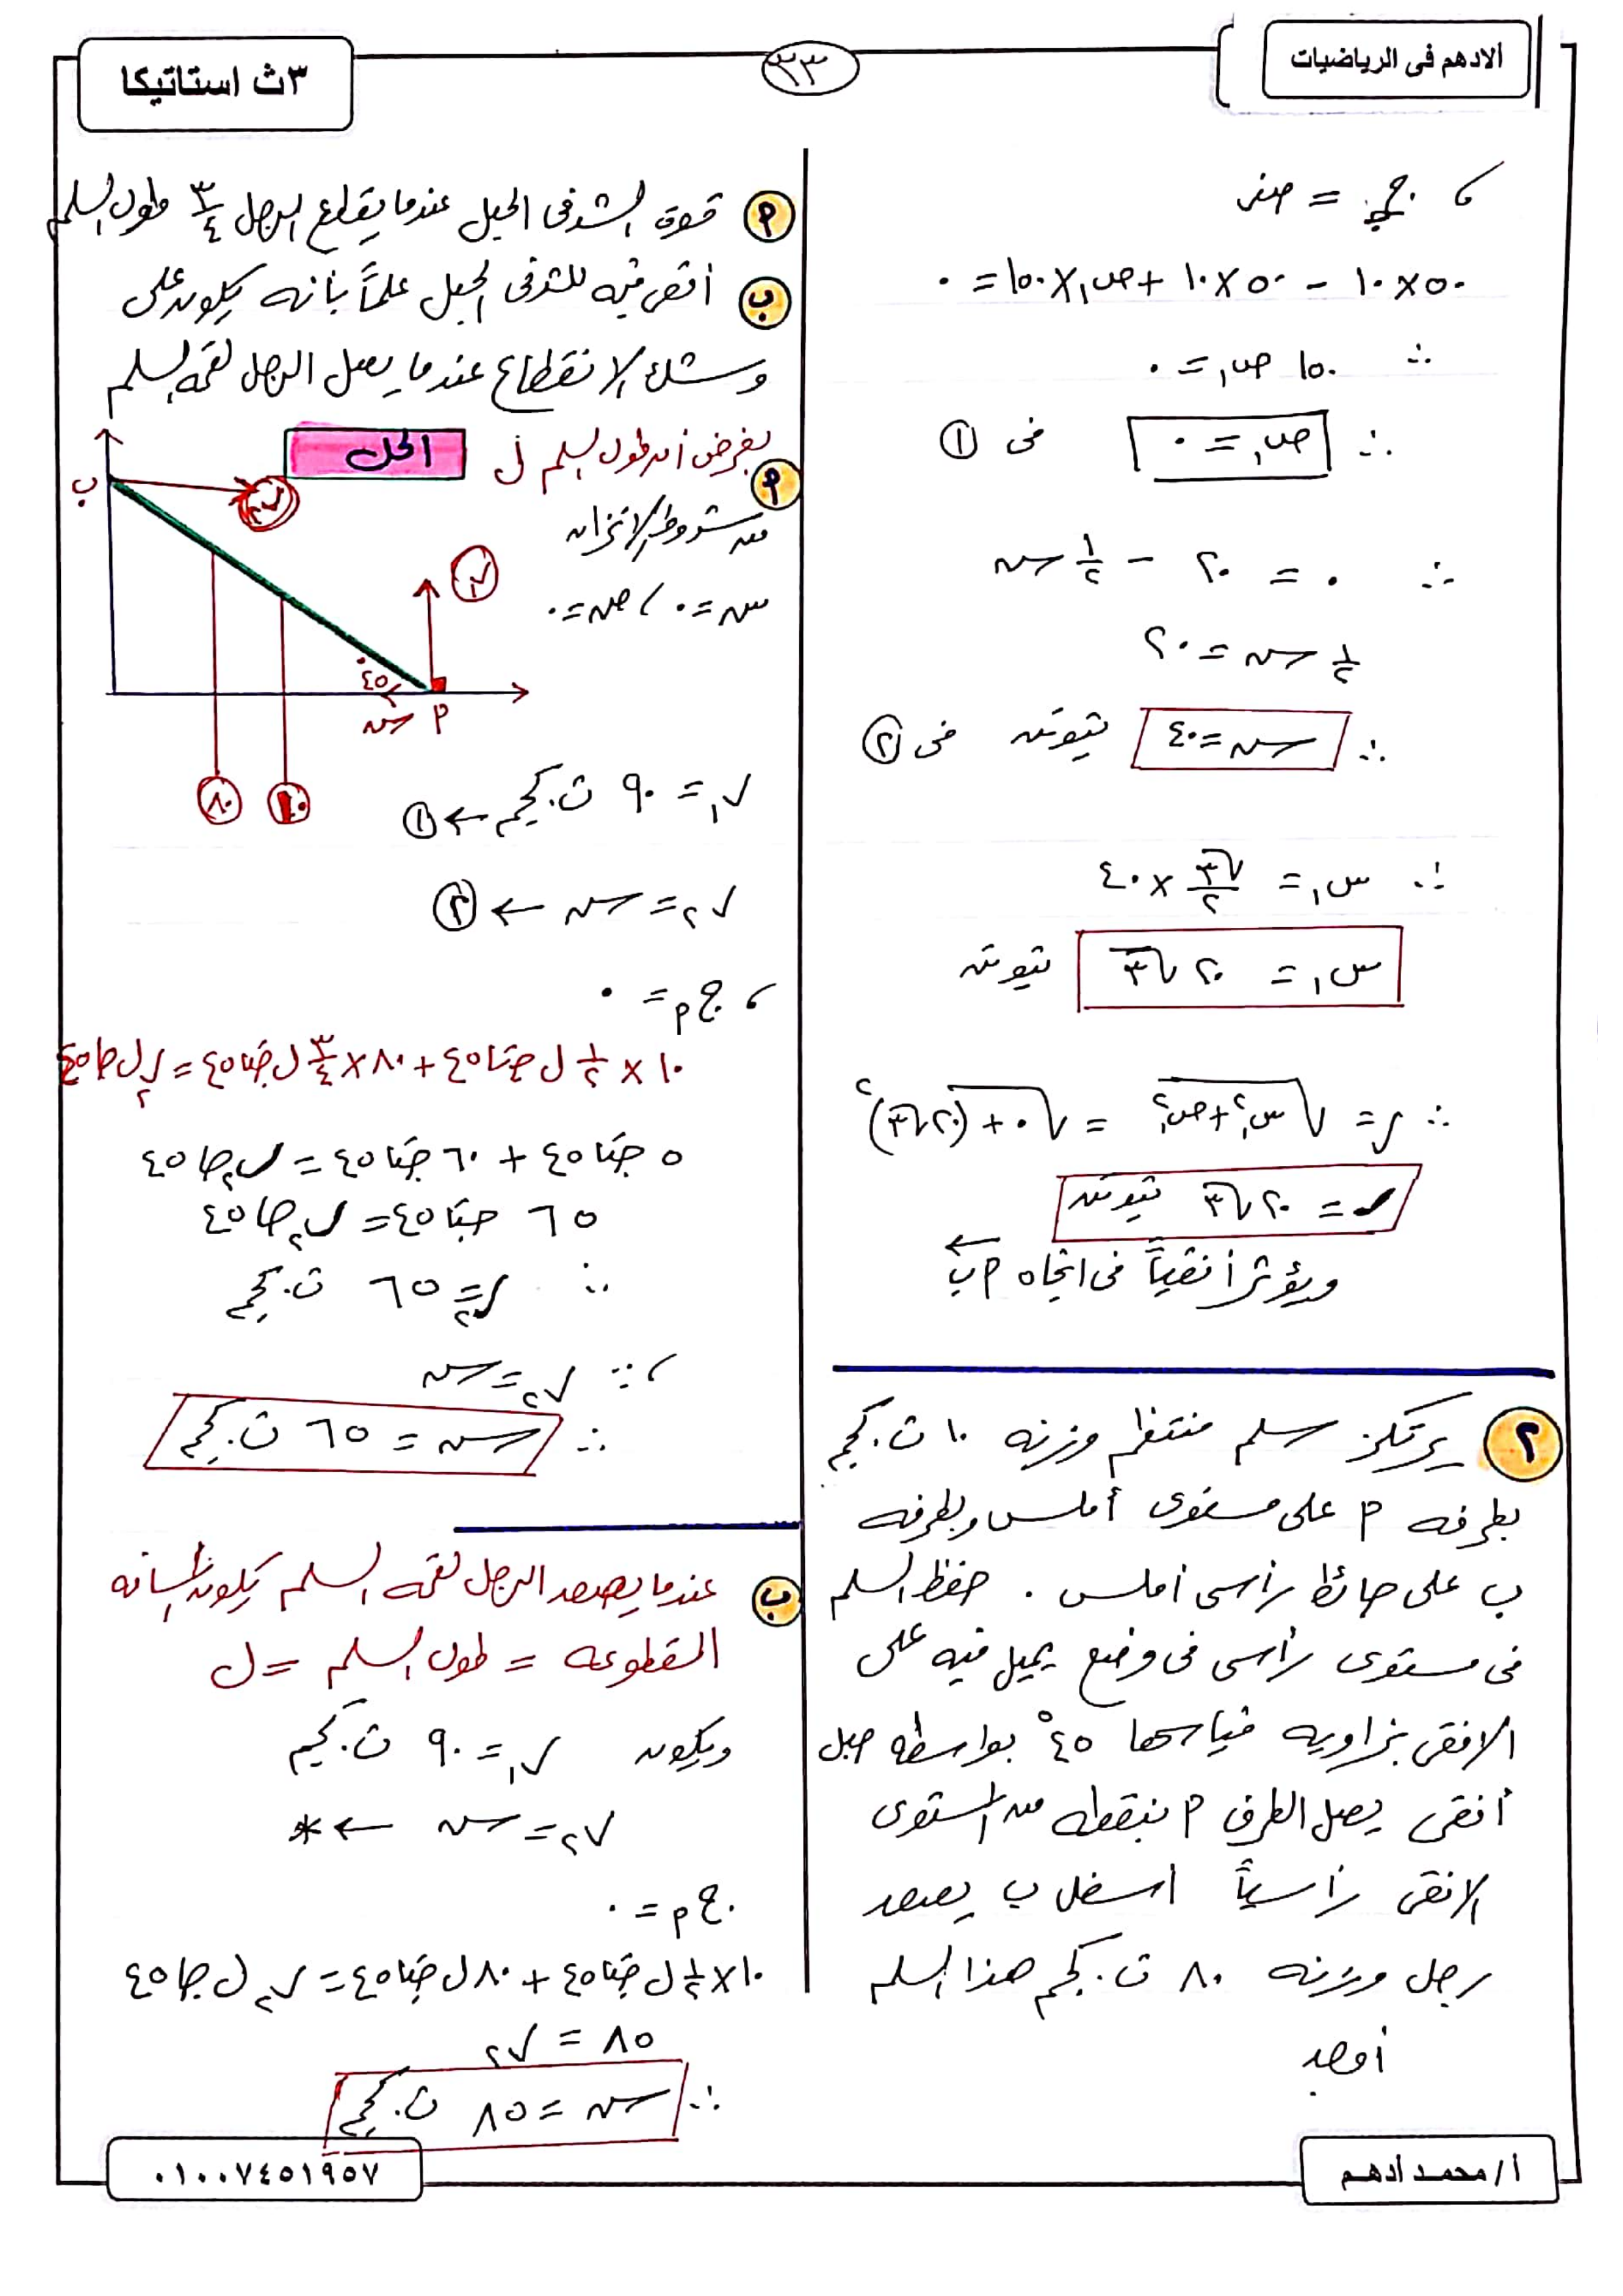 الادهم فى الرياضيات
٣٣
٣ث استاتيكا
، جـب = صفر
٥٠ × ١٠ − ٥٠ × ١٠ + ص١ × ١٠٠ = ٠
∴ ١٠٠ ص١ = ٠
∴ ص١ = ٠ فى ①
∴ ٠ = ٢٠ − ١/٢ ش
١/٢ ش = ٢٠
∴ ش = ٤٠ نيوتن فى ②
∴ س١ = √٣/٢ × ٤٠
س١ = ٢٠ √٣ نيوتن
∴ ر = √(س١² + ص١²) = √(٠ + (٢٠√٣)²)
ر = ٢٠ √٣ نيوتن
ويؤثر أفقياً فى اتجاه م ب
② يرتكز سلم منتظم وزنه ١٠ ث.كجم
بطرفه م على مستوى أملس وبطرفه
ب على حائط رأسى أملس . حفظ السلم
فى مستوى رأسى فى وضع يميل فيه على
الافقى بزاويه قياسها ٤٥° بواسطه حبل
أفقى يصل الطرف م بنقطه من المستوى
الافقى رأسياً اسفل ب يصعد
رجل وزنه ٨٠ ث.كجم هذا السلم
أوجد
م قوة الشد فى الحبل عندما يقطع الرجل ٣/٤ طول السلم
ب أقصى قيمه للشد فى الحبل علماً بأنه يكون على
وشك الانقطاع عندما يصل الرجل لقمة السلم
الحل
م بفرض أن طول السلم ل
من شروط الاتزان
س = ٠ ، ص = ٠
ب
ر٢
ر١
٤٥°
ش
م
٨٠
١٠
ر١ = ٩٠ ث.كجم ← ①
ر٢ = ش ← ②
، جـم = ٠
١٠ × ١/٢ ل جتا٤٥ + ٨٠ × ٣/٤ ل جتا٤٥ = ر٢ ل جا٤٥
٥ جتا٤٥ + ٦٠ جتا٤٥ = ر٢ جا٤٥
٦٥ جتا٤٥ = ر٢ جا٤٥
∴ ر٢ = ٦٥ ث.كجم
، ∵ ر٢ = ش
∴ ش = ٦٥ ث.كجم
ب عندما يصعد الرجل لقمه السلم تكون المسافه
المقطوعه = طول السلم = ل
ويكون ر١ = ٩٠ ث.كجم
ر٢ = ش ← *
جـم = ٠
١٠ × ١/٢ ل جتا٤٥ + ٨٠ ل جتا٤٥ = ر٢ ل جا٤٥
٨٥ = ر٢
∴ ش = ٨٥ ث.كجم
أ/محمد أدهم
٠١٠٠٧٤٥١٩٥٧